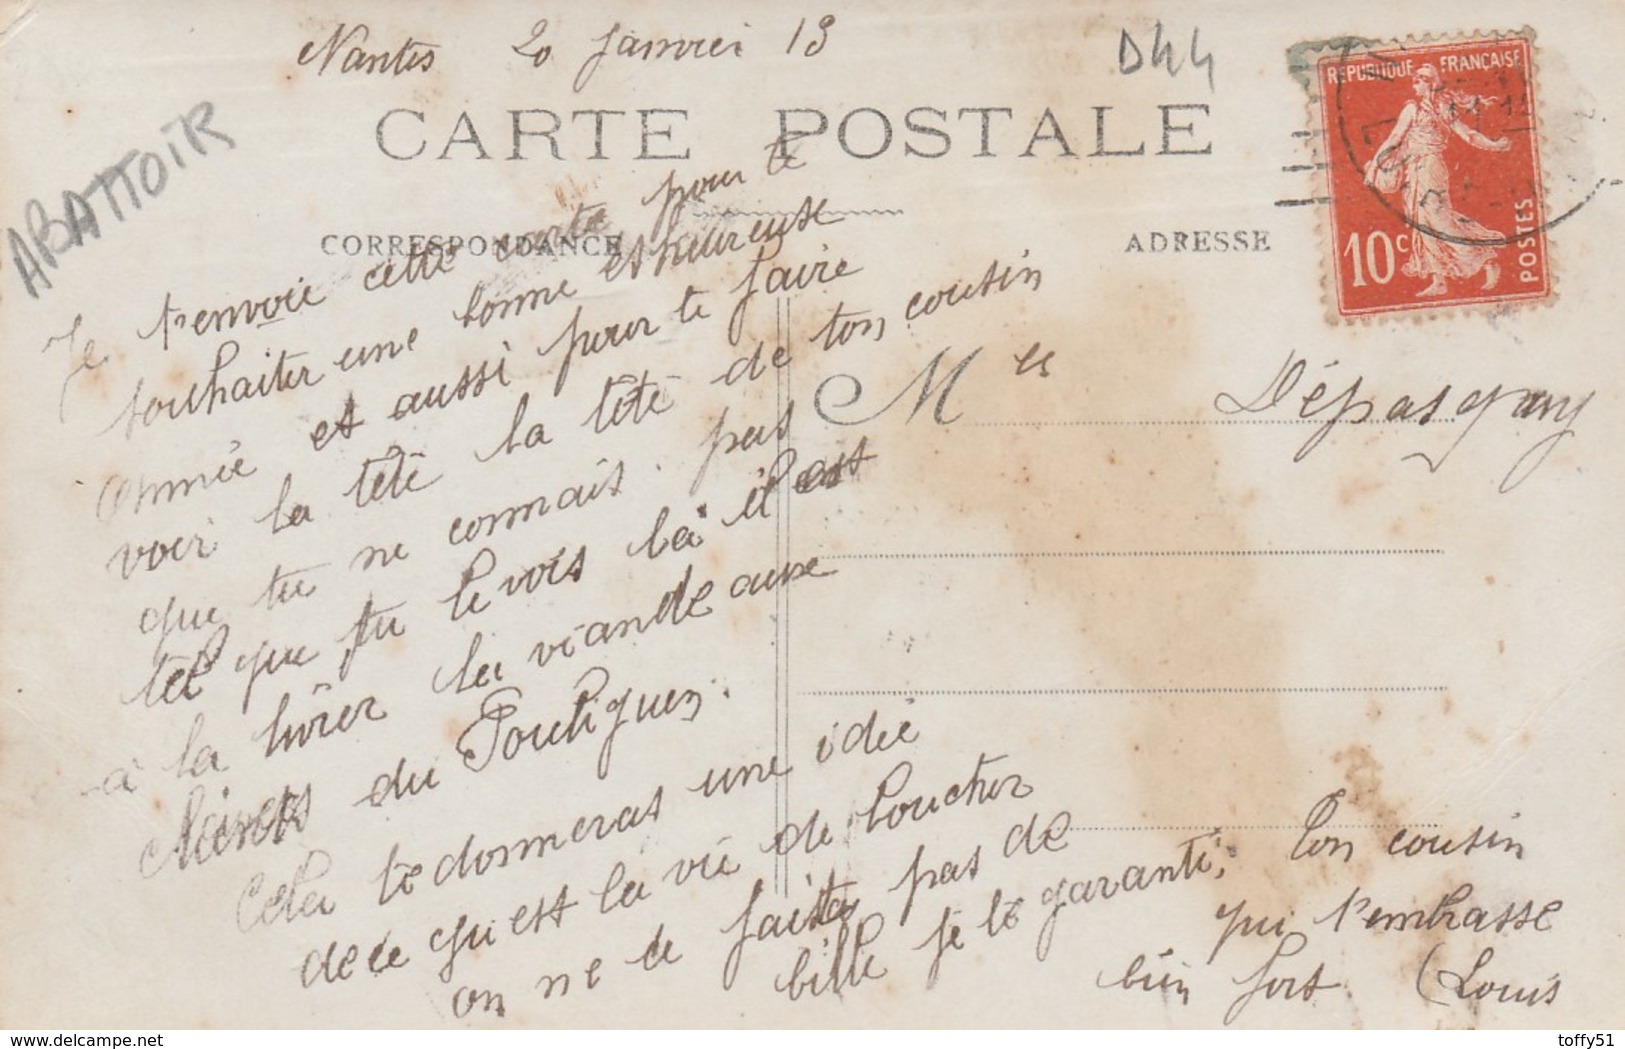 Nantes 20 Janvier 13
D44
ABATTOIR
CARTE POSTALE
CORRESPONDANCE
ADRESSE
REPUBLIQUE FRANÇAISE
10c POSTES
Je t'envoie cette carte pour te
souhaiter une bonne et heureuse
année et aussi pour te faire
voir la tête la tête de ton cousin
que tu ne connais pas
tel que tu le vois là il est
à la livrer la viande aux
du Pouliguen.
Cela te donneras une idée
de ce qu'est la vie de boucher
on ne de pas de
bille je te garanti,
Ton cousin
qui t'embrasse
bien fort (Louis
Mlle
delcampe.net
toffy51